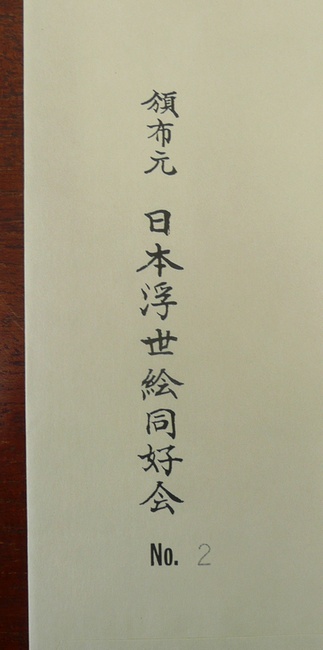 頒布元 日本浮世絵同好会
No. 2